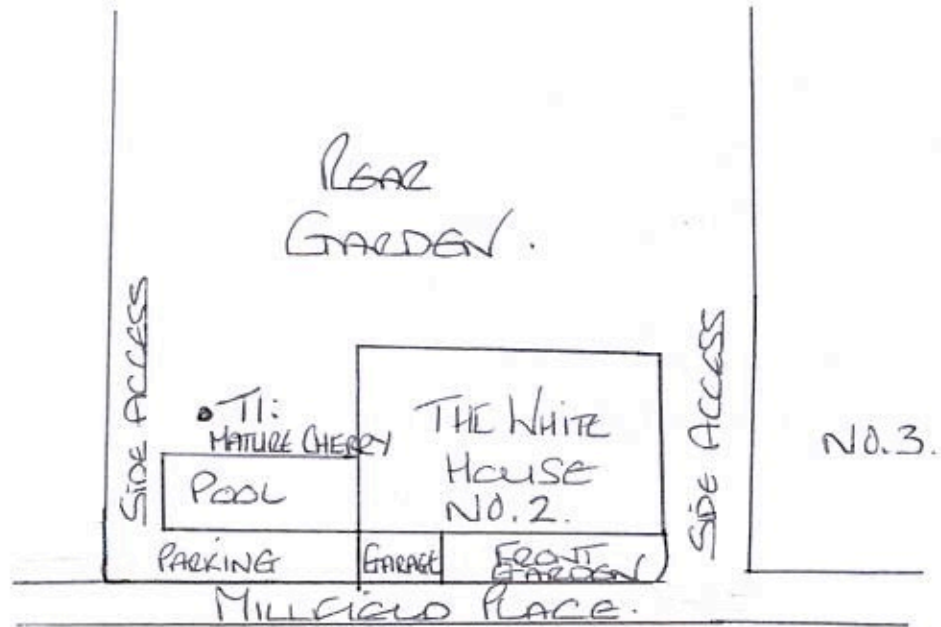 REAR
GARDEN.
SIDE ACCESS
• T1:
MATURE CHERRY
POOL
THE WHITE
HOUSE
NO.2.
SIDE ACCESS
NO.3.
PARKING
GARAGE
FRONT
GARDEN
MILLFIELD PLACE.